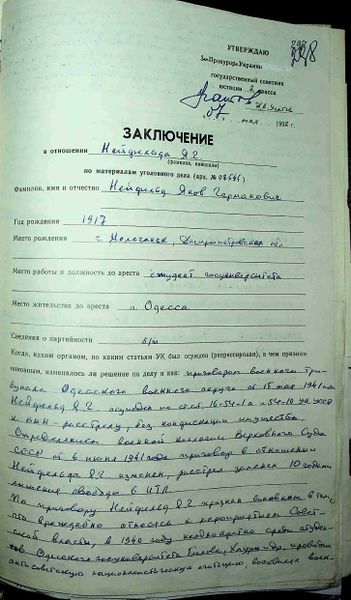 228
УТВЕРЖДАЮ
Зам. Прокурора Украины
государственный советник
юстиции 3 класса
07 мая 1992 г.
ЗАКЛЮЧЕНИЕ
в отношении Нейфельда Я.Г.
(фамилия, инициалы)
по материалам уголовного дела (арх. №
Фамилия, имя и отчество Нейфельд Яков Германович
Год рождения 1917
Место рождения г. Молочанск Днепропетровская обл
Место работы и должность до ареста студент госуниверситета
Место жительства до ареста г. Одесса
Сведения о партийности б/п
Когда, каким органом, по каким статьям УК был осужден (репрессирован), в чем признан
виновным, изменялось ли решение по делу и как: приговором военного три-
бунала Одесского военного округа от 15 мая 1941 года
Нейфельд Я.Г. осужден по ст.ст. 16-54-1а и 54-10 УК УССР
к ВМН - расстрелу, без конфискации имущества.
Определением военной коллегии Верховного Суда
СССР от 6 июня 1941 года приговор в отношении
Нейфельда Я.Г. изменен, расстрел заменен 10 годами
лишения свободы в ИТЛ.
По приговору Нейфельд Я.Г. признан виновным в том,
что враждебно относясь к мероприятиям Совет-
ской власти, в 1940 году неоднократно среди студен-
тов Одесского госуниверситета проводил
антисоветскую националистическую агитацию, восхвалял